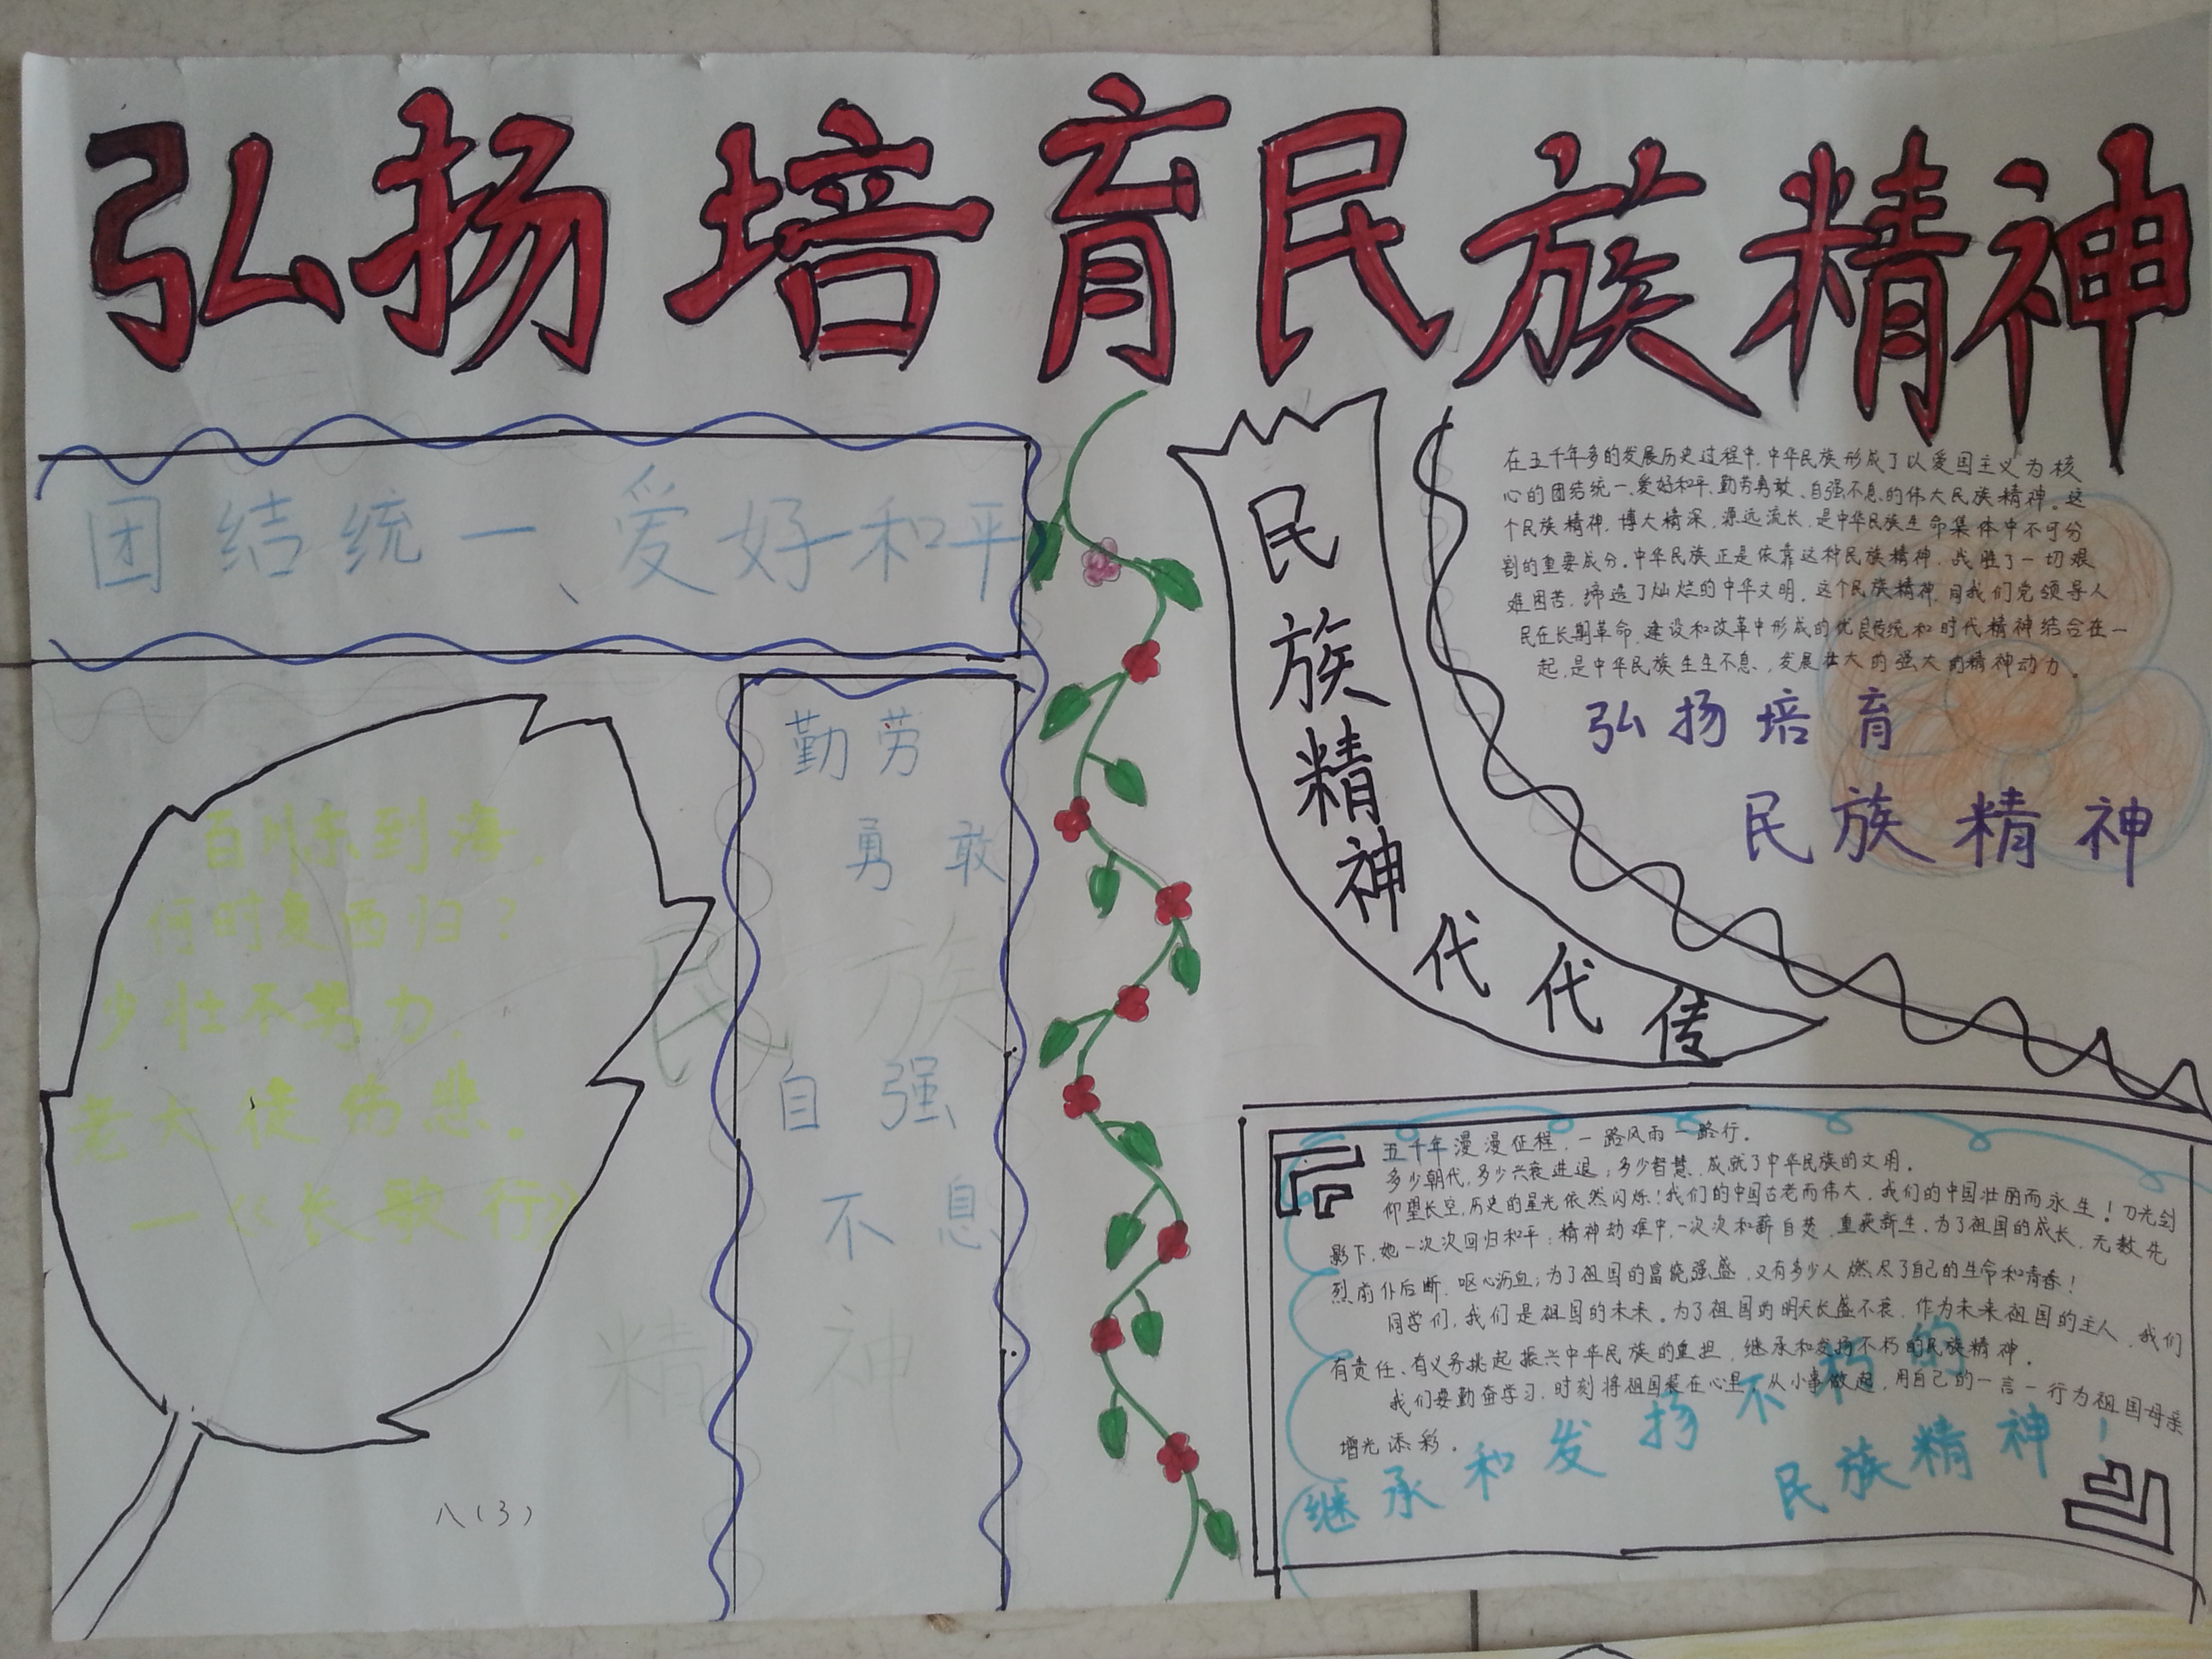 弘扬培育民族精神
团结统一、爱好和平
百川东到海，
何时复西归？
少壮不努力，
老大徒伤悲。
—《长歌行》
八(3)
勤劳
勇敢
民族
自强
不息
精神
民族精神代代传
在五千年多的发展历史过程中，中华民族形成了以爱国主义为核
心的团结统一、爱好和平、勤劳勇敢、自强不息的伟大民族精神。这
个民族精神，博大精深，源远流长，是中华民族生命集体中不可分
割的重要成分。中华民族正是依靠这种民族精神，战胜了一切艰
难困苦，缔造了灿烂的中华文明。这个民族精神，同我们党领导人
民在长期革命，建设和改革中形成的优良传统和时代精神结合在一
起，是中华民族生生不息，发展壮大的强大的精神动力。
弘扬培育
民族精神
五千年漫漫征程，一路风雨一路行。
多少朝代，多少兴衰进退；多少智慧，成就了中华民族的文明。
仰望长空，历史的星光依然闪烁！我们的中国古老而伟大，我们的中国壮丽而永生！刀光剑
影下，她一次次回归和平；精神劫难中，一次次和薪自焚，重获新生。为了祖国的成长，无数先
烈前仆后断，呕心沥血；为了祖国的富饶强盛，又有多少人燃尽了自己的生命和青春！
同学们，我们是祖国的未来。为了祖国的明天长盛不衰，作为未来祖国的主人，我们
有责任、有义务挑起振兴中华民族的重担，继承和发扬不朽的民族精神。
我们要勤奋学习，时刻将祖国装在心里，从小事做起，用自己的一言一行为祖国母亲
增光添彩。
继承和发扬不朽的
民族精神！